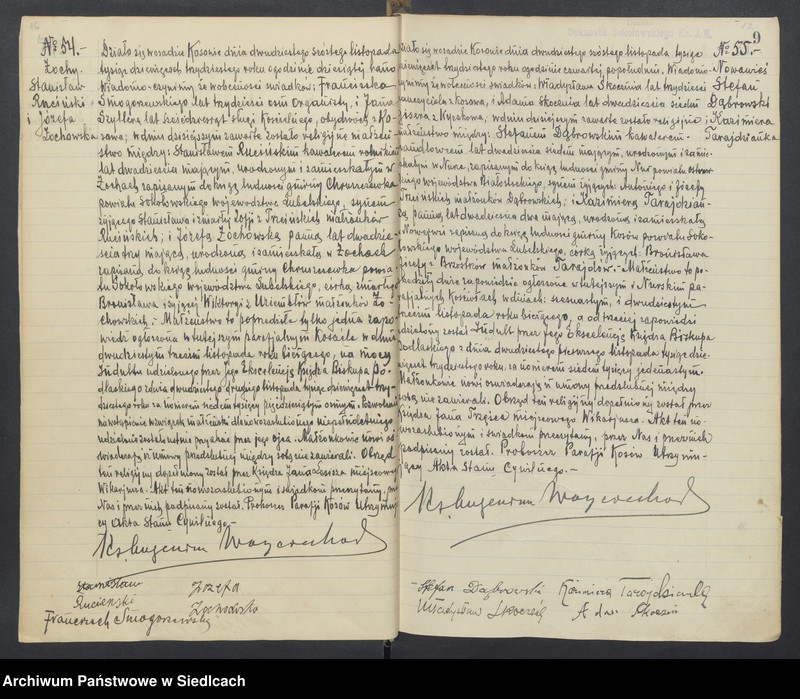 № 54.-
Żochy
Stanisław
Ruciński
i Józefa
Żochowska
Działo się w osadzie Kosowie dnia dwudziestego szóstego listopada
tysiąc dziewięćset trzydziestego roku o godzinie dziesiątej rano
Wiadomo czynimy że w obecności świadków: Franciszka
Smogorzewskiego lat trzydzieści osm Organisty, i Jana
lat sześćdziesiąt sługi Kościelnego, obydwóch z Ko-
sowa; w dniu dzisiejszym zawarte zostało religijne małżeń-
stwo między: Stanisławem Rucińskim kawalerem rolnikiem
lat dwadzieścia mającym, urodzonym i zamieszkałym w
Żochach zapisanym do ksiąg ludności gminy Chruszczewka
powiatu Sokołowskiego województwa Lubelskiego, synem
żyjącego Stanisława i zmarłej Zofji z Trzcińskich małżonków
Rucińskich; i Józefą Żochowską panną lat dwadzieś-
cia trzy mającą, urodzoną i zamieszkałą w Żochach
zapisaną do ksiąg ludności gminy Chruszczewka powia-
tu Sokołowskiego województwa Lubelskiego, córką zmarłego
Bronisława i żyjącej Wiktorji z małżonków Żo-
chowskich.- Małżeństwo to poprzedziła tylko jedna zapo-
wiedź ogłoszona w tutejszym parafjalnym Kościele w dniu
dwudziestym trzecim listopada roku bieżącego, na mocy
Indultu udzielonego przez Jego Ekscelencję Księdza Biskupa Po-
dlaskiego z dnia dwudziestego drugiego listopada tysiąc dziewięćset trzy-
dziestego roku za numerem siedem tysięcy pięćdziesiątym osmym. Zezwolenie
na wstąpienie w związek małżeński dla nowozaślubionego niepełnoletniego
udzielone zostało ustnie przez jego ojca. Małżonkowie nowi oś-
wiadczają iż umowy przedślubnej między sobą nie zawierali. Obrzęd
ten religijny dopełniony został przez Księdza Jana miejscowego
Wikarjusza. Akt ten nowozaślubionym i świadkom przeczytany, przez
Nas i przez nich podpisany został. Proboszcz Parafji Kosów Utrzymują-
cy Akta Stanu Cywilnego.-
Ks. Eugenjusz
Stanisław Józefa
Ruciński Żochowska
Franciszek Smogorzewski
9
№ 55.-
Nowawieś
Stefan
Dąbrowski
i Kazimiera
Tarajdzianka
Działo się w osadzie Kosowie dnia dwudziestego szóstego listopada tysiąc
dziewięćset trzydziestego roku o godzinie czwartej popołudniu. Wiadomo
czynimy że w obecności świadków: Władysława Skocenia lat trzydzieści
nauczyciela z Kosowa, i Adama Skocenia lat dwadzieścia siedm
z w dniu dzisiejszym zawarte zostało religijne
małżeństwo między: Stefanem Dąbrowskim kawalerem
handlowcem lat dwadzieścia siedm mającym, urodzonym i zamie-
szkałym w Nurze, zapisanym do ksiąg ludności gminy Nur powiatu ostrow-
skiego województwa Białostockiego, synem żyjących: Antoniego i Józefy
Trzcińskich małżonków Dąbrowskich; i Kazimierą Tarajdzian-
ką, panną lat dwadzieścia dwa mającą, urodzoną i zamieszkałą
w Nowejwsi zapisaną do ksiąg ludności gminy Kosów powiatu Soko-
łowskiego województwa Lubelskiego, córką żyjących: Bronisława
i Józefy z Brzostków małżonków Tarajdów.- Małżeństwo to po-
przedziły dwie zapowiedzie ogłoszone w tutejszym i Nurskim pa-
rafjalnych Kościołach w dniach: szesnastym, i dwudziestym
trzecim listopada roku bieżącego, a od trzeciej zapowiedzi
udzielony został Indult przez Jego Ekscelencję Księdza Biskupa
Podlaskiego z dnia dwudziestego pierwszego listopada tysiąc dzie-
więćset trzydziestego roku, za numerem siedem tysięcy jedenastym.
Małżonkowie nowi oświadczają iż umowy przedślubnej między
sobą nie zawierali. Obrzęd ten religijny dopełniony został przez
Księdza Jana miejscowego Wikarjusza. Akt ten no-
wozaślubionym i świadkom przeczytany, przez Nas i przez nich
podpisany został. Proboszcz Parafji Kosów Utrzymu-
jący Akta Stanu Cywilnego.-
Ks. Eugenjusz
Stefan Dąbrowski Kazimiera Tarajdzianka
Władysław Skoceń Adam Skoceń
Archiwum Państwowe w Siedlcach